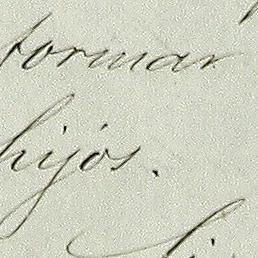 formar
hijos.